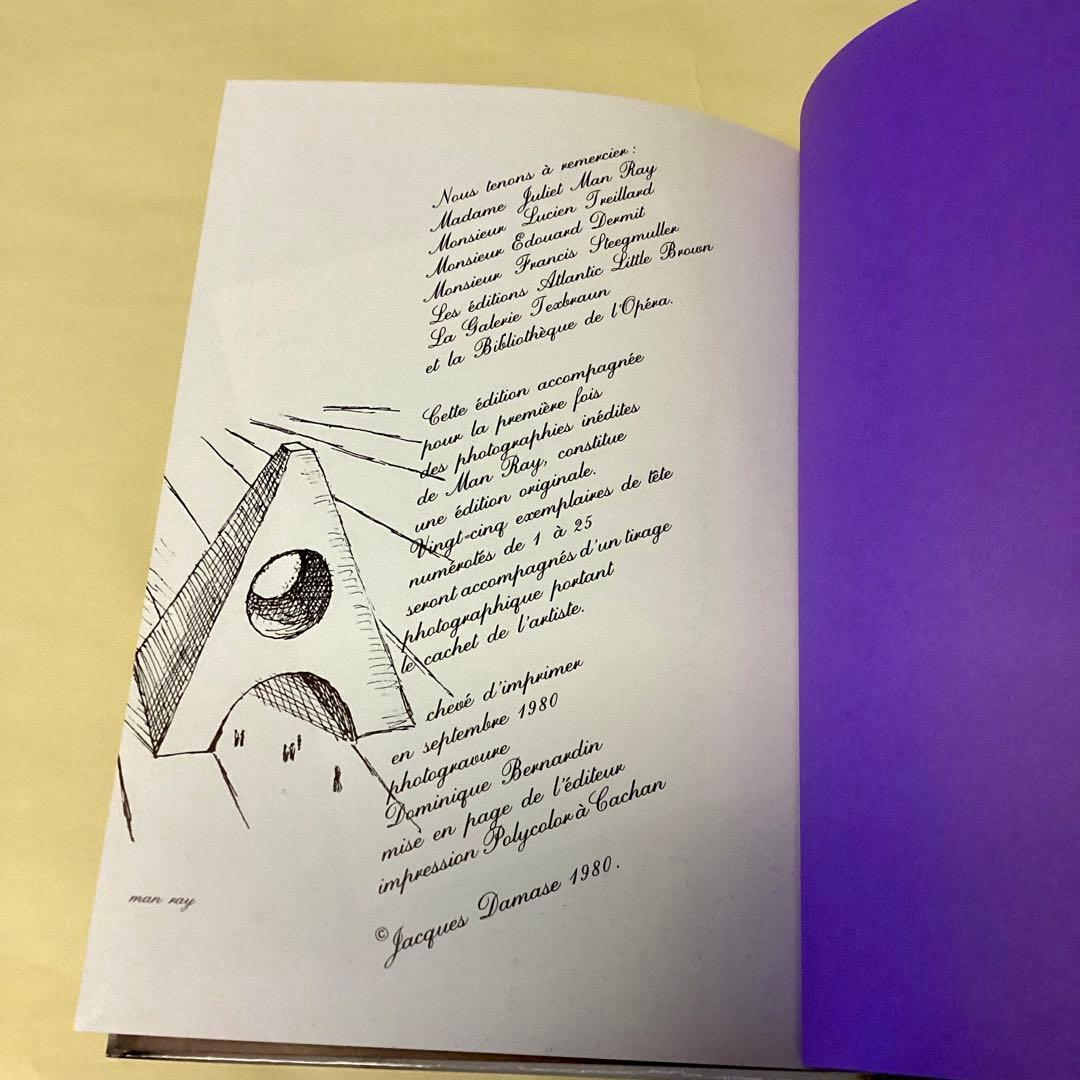 Nous tenons à remercier :
Madame Juliet Man Ray
Monsieur Lucien Treillard
Monsieur Edouard Dermit
Monsieur Francis Steegmuller
Les éditions Atlantic Little Brown
La Galerie Texbraun
et la Bibliothèque de l'Opéra.
Cette édition accompagnée
pour la première fois
des photographies inédites
de Man Ray, constitue
une édition originale.
Vingt-cinq exemplaires de tête
numérotés de 1 à 25
seront accompagnés d'un tirage
photographique portant
le cachet de l'artiste.
chevé d'imprimer
en septembre 1980
photogravure
Dominique Bernardin
mise en page de l'éditeur
impression Polycolor à Cachan
© Jacques Damase 1980.
man ray